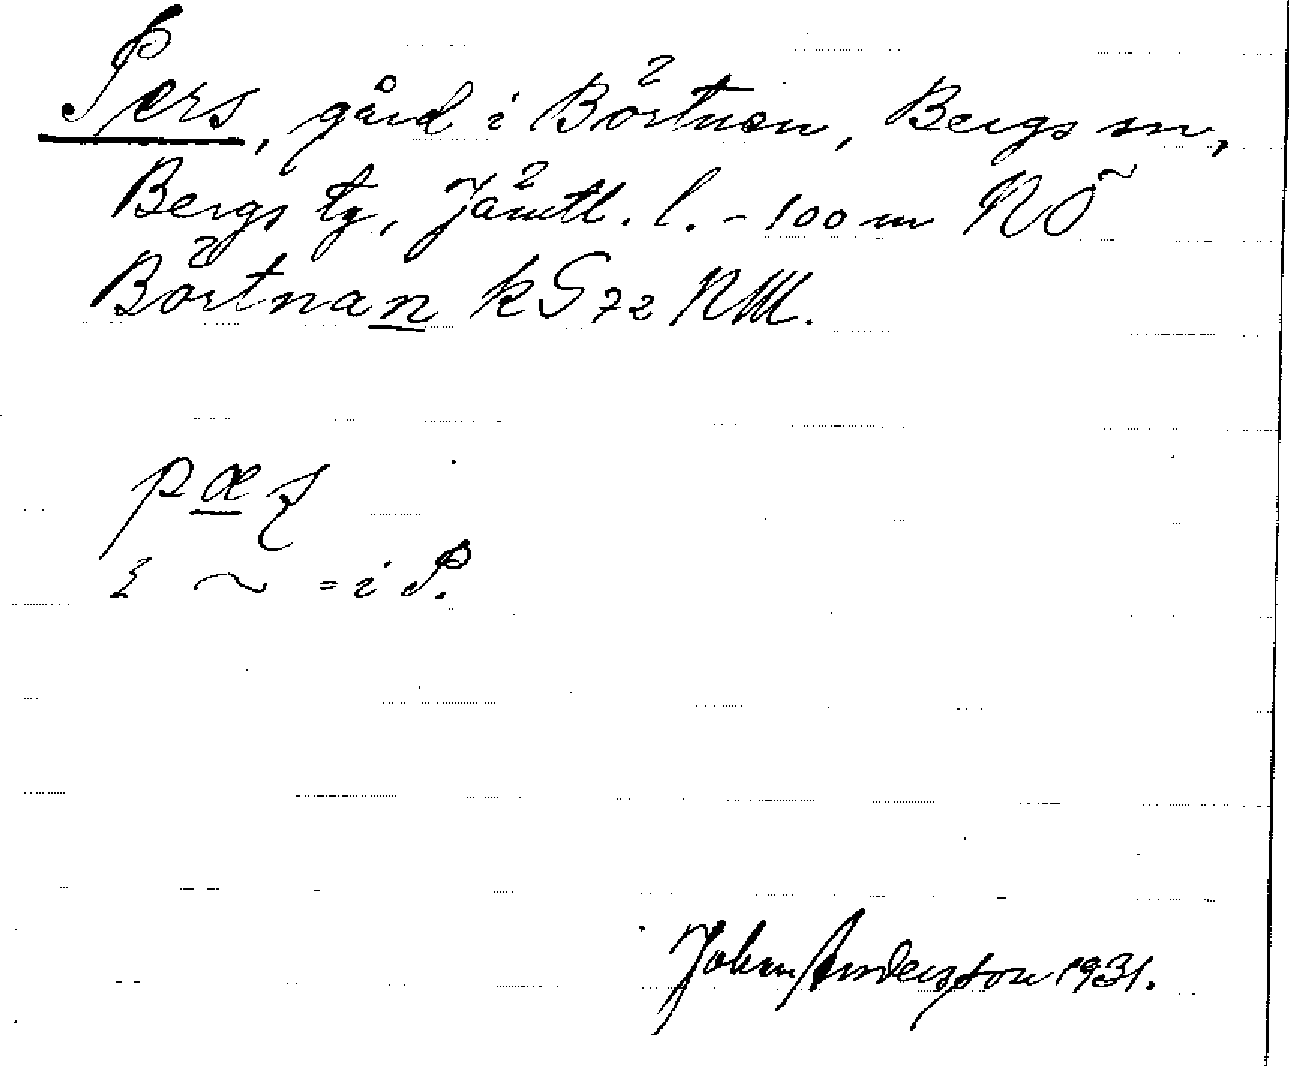 Pers, gård i Börtnan, Bergs sn,
Bergs tg, Jämtl. l. - 100 m NÖ
Börtnan k S 72 NM.
pæʂ
i ~ = i P.
Johan Andersson 1931.